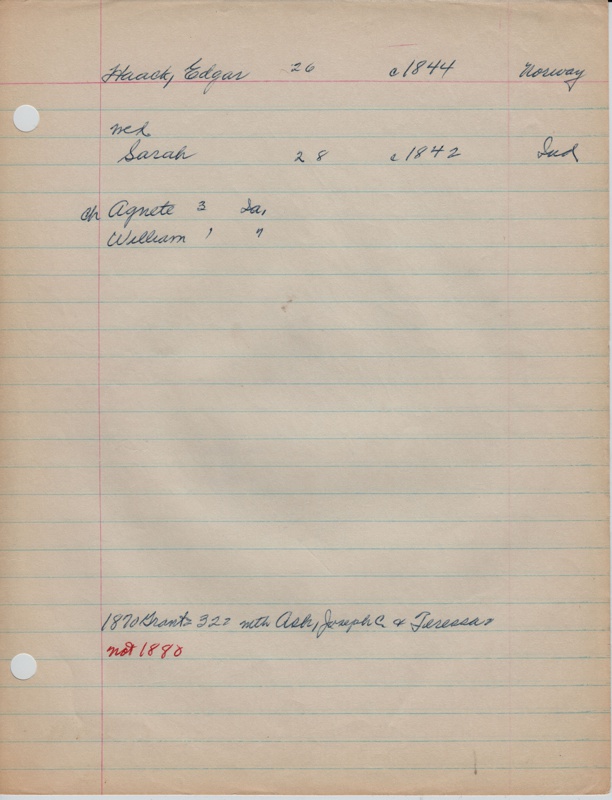 Haack, Edgar 26 c1844 Norway
med
Sarah 28 c1842 Ind
ch Agnete 3 Ia,
William 1 "
1870 Grant 322 with Ash, Joseph C. & Teressa
not 1880